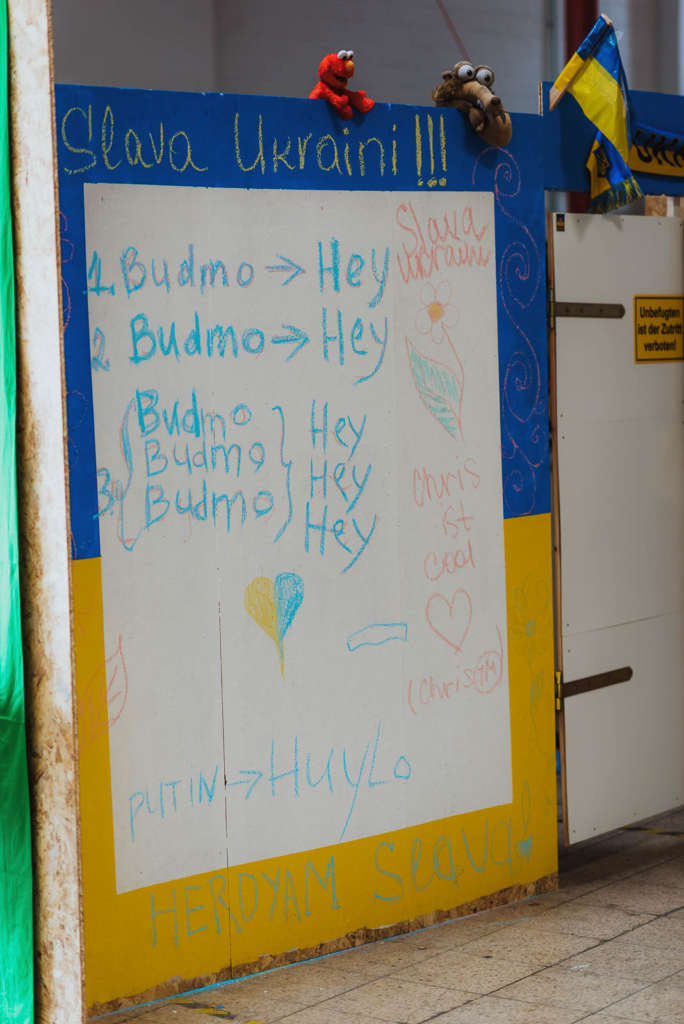 Slava Ukraini !!!
Slava
Ukraini
1. Budmo → Hey
2 Budmo → Hey
Budmo Hey
3. Budmo Hey
Budmo Hey
Chris
ist
cool
(Chris TM)
PUTIN → HUYLO
HEROYAM Slava!
Unbefugten
ist der Zutritt
verboten!